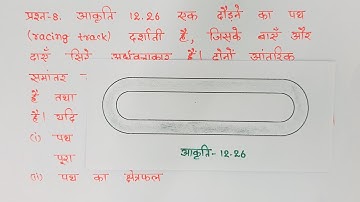 प्रश्न-8. आकृति 12.26 एक दौड़ने का पथ
(racing track) दर्शाती है, जिसके बाएँ और
दाएँ सिरे अर्धवृत्ताकार हैं। दोनों आंतरिक
समांतर
हैं तथा
है। यदि
(i) पथ
पूरा
(ii) पथ का क्षेत्रफल
आकृति- 12.26